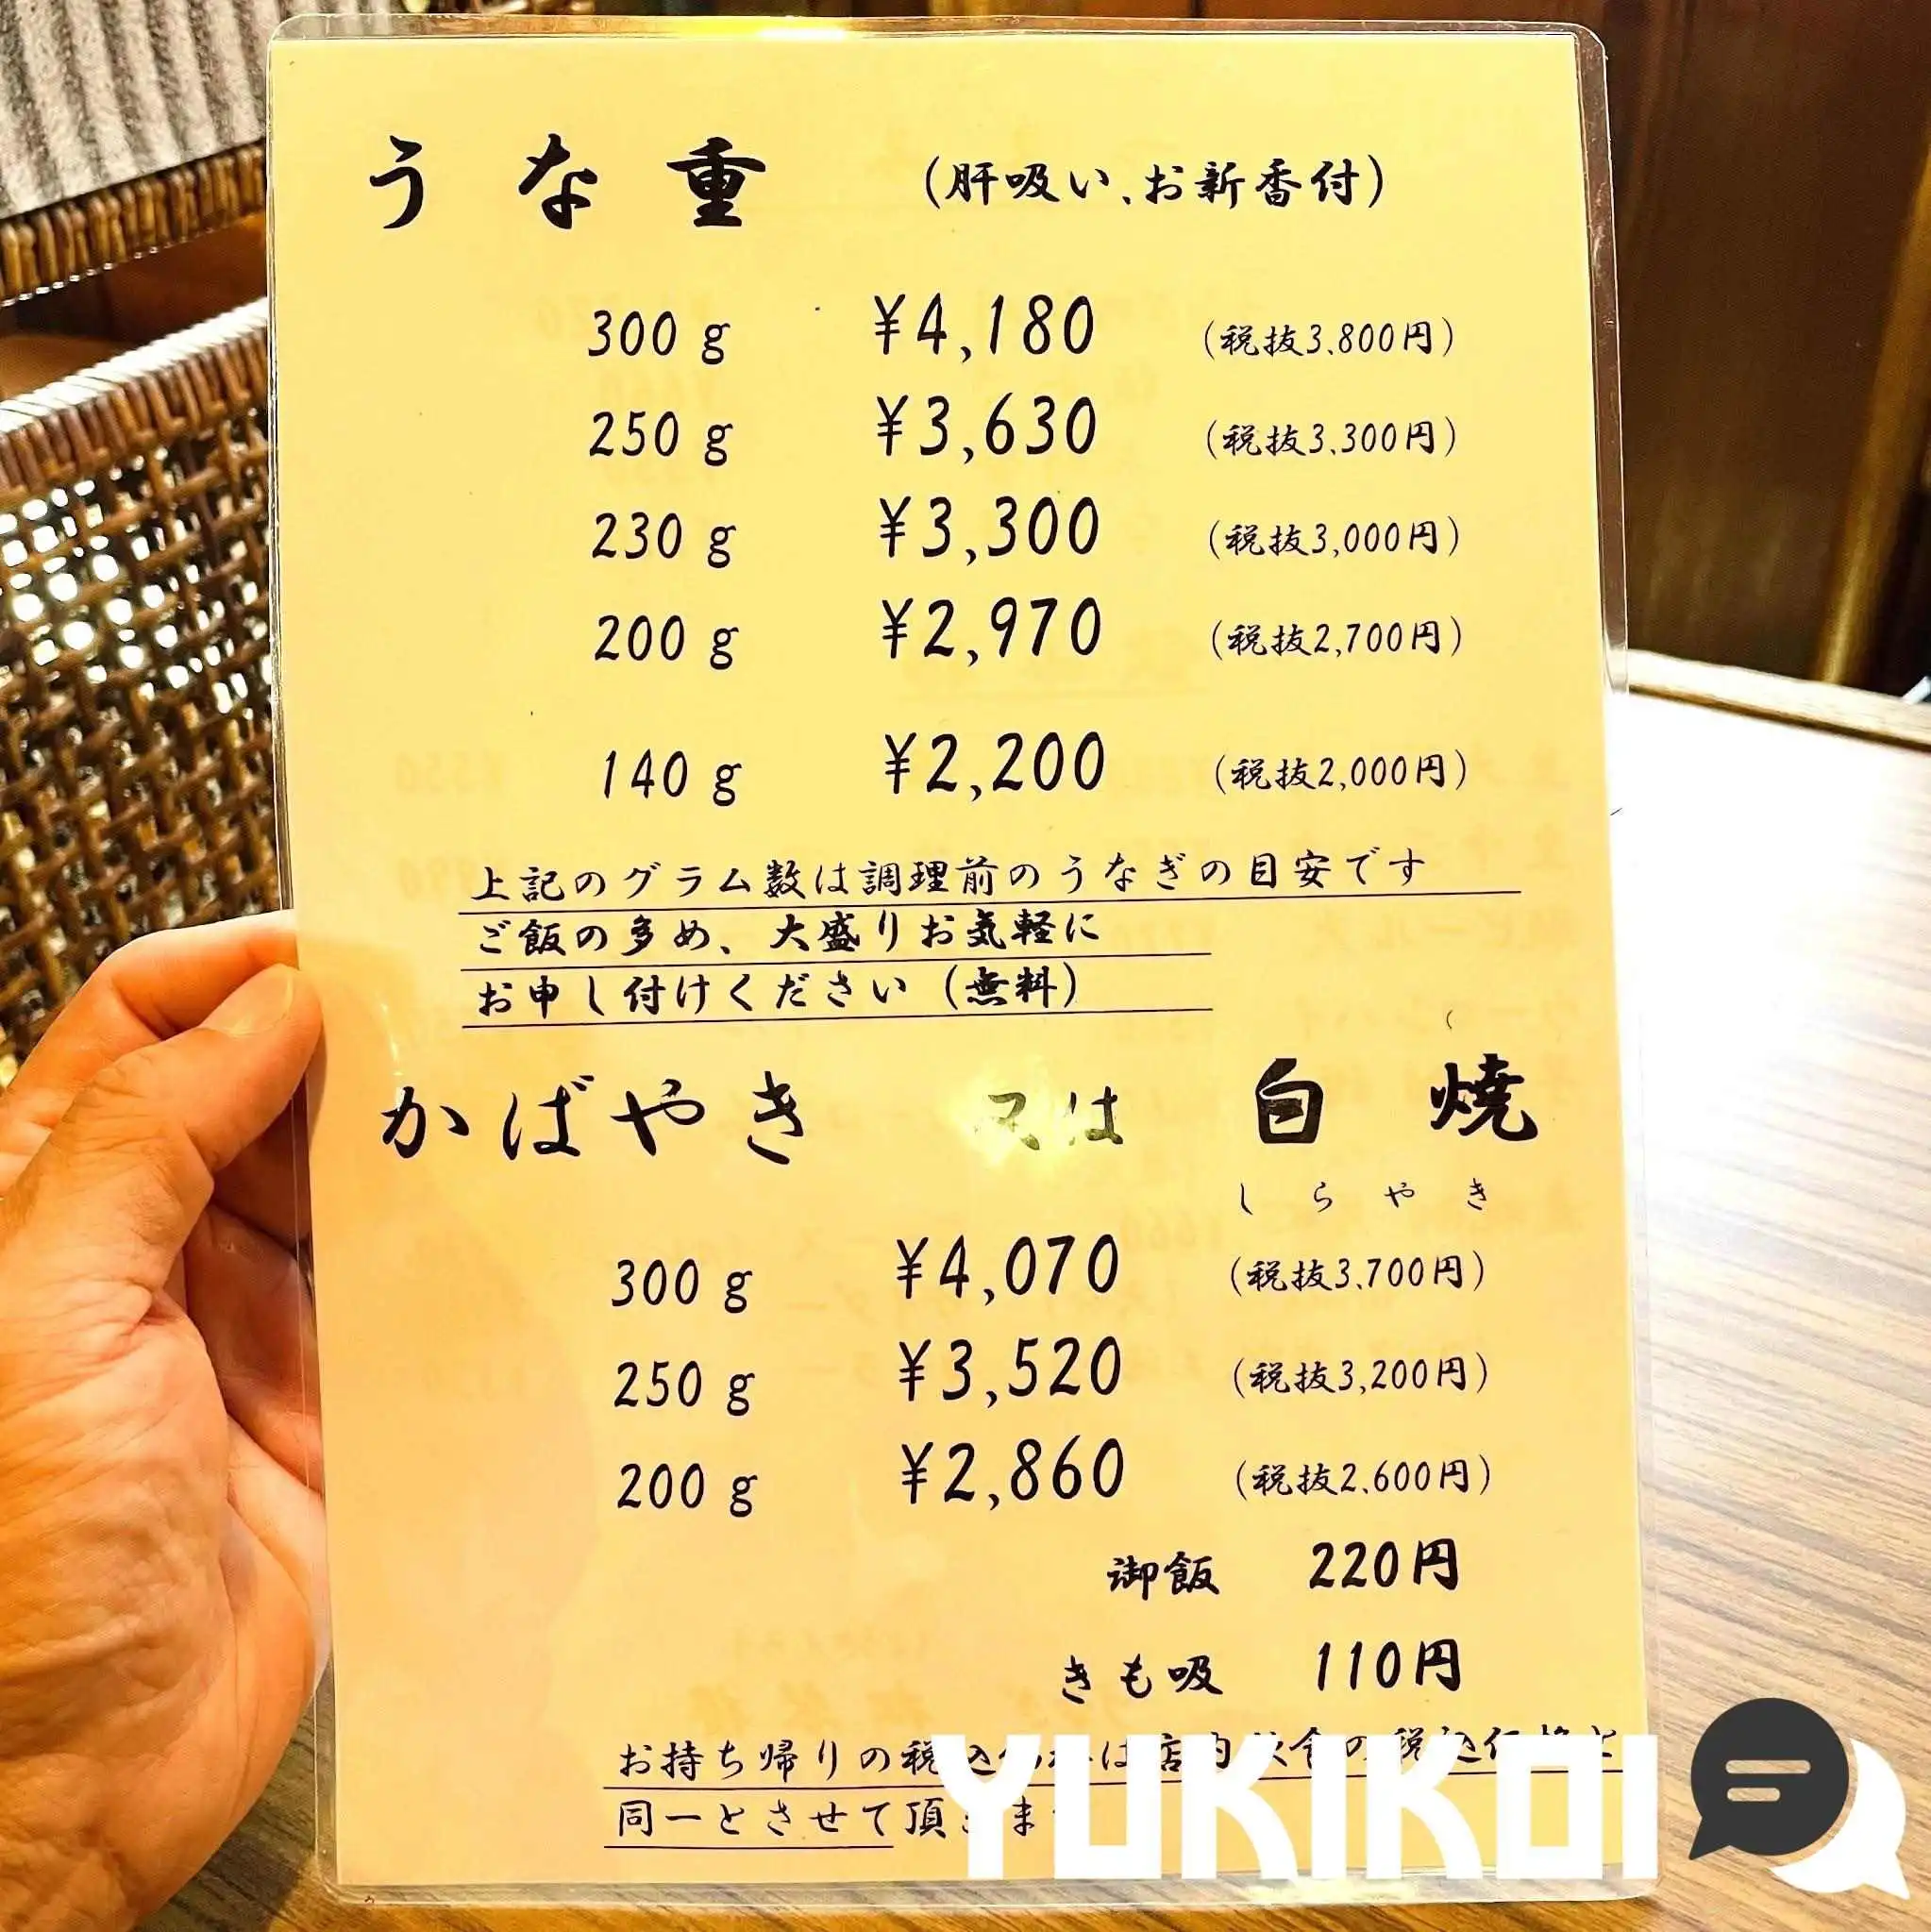 うな重 (肝吸い、お新香付)
300g ¥4,180 (税抜3,800円)
250g ¥3,630 (税抜3,300円)
230g ¥3,300 (税抜3,000円)
200g ¥2,970 (税抜2,700円)
140g ¥2,200 (税抜2,000円)
上記のグラム数は調理前のうなぎの目安です
ご飯の多め、大盛りお気軽に
お申し付けください(無料)
かばやき 又は 白焼
しらやき
300g ¥4,070 (税抜3,700円)
250g ¥3,520 (税抜3,200円)
200g ¥2,860 (税抜2,600円)
御飯 220円
きも吸 110円
お持ち帰りの税込価格は店内飲食の税込価格と
同一とさせて頂きます
YUKIKOI